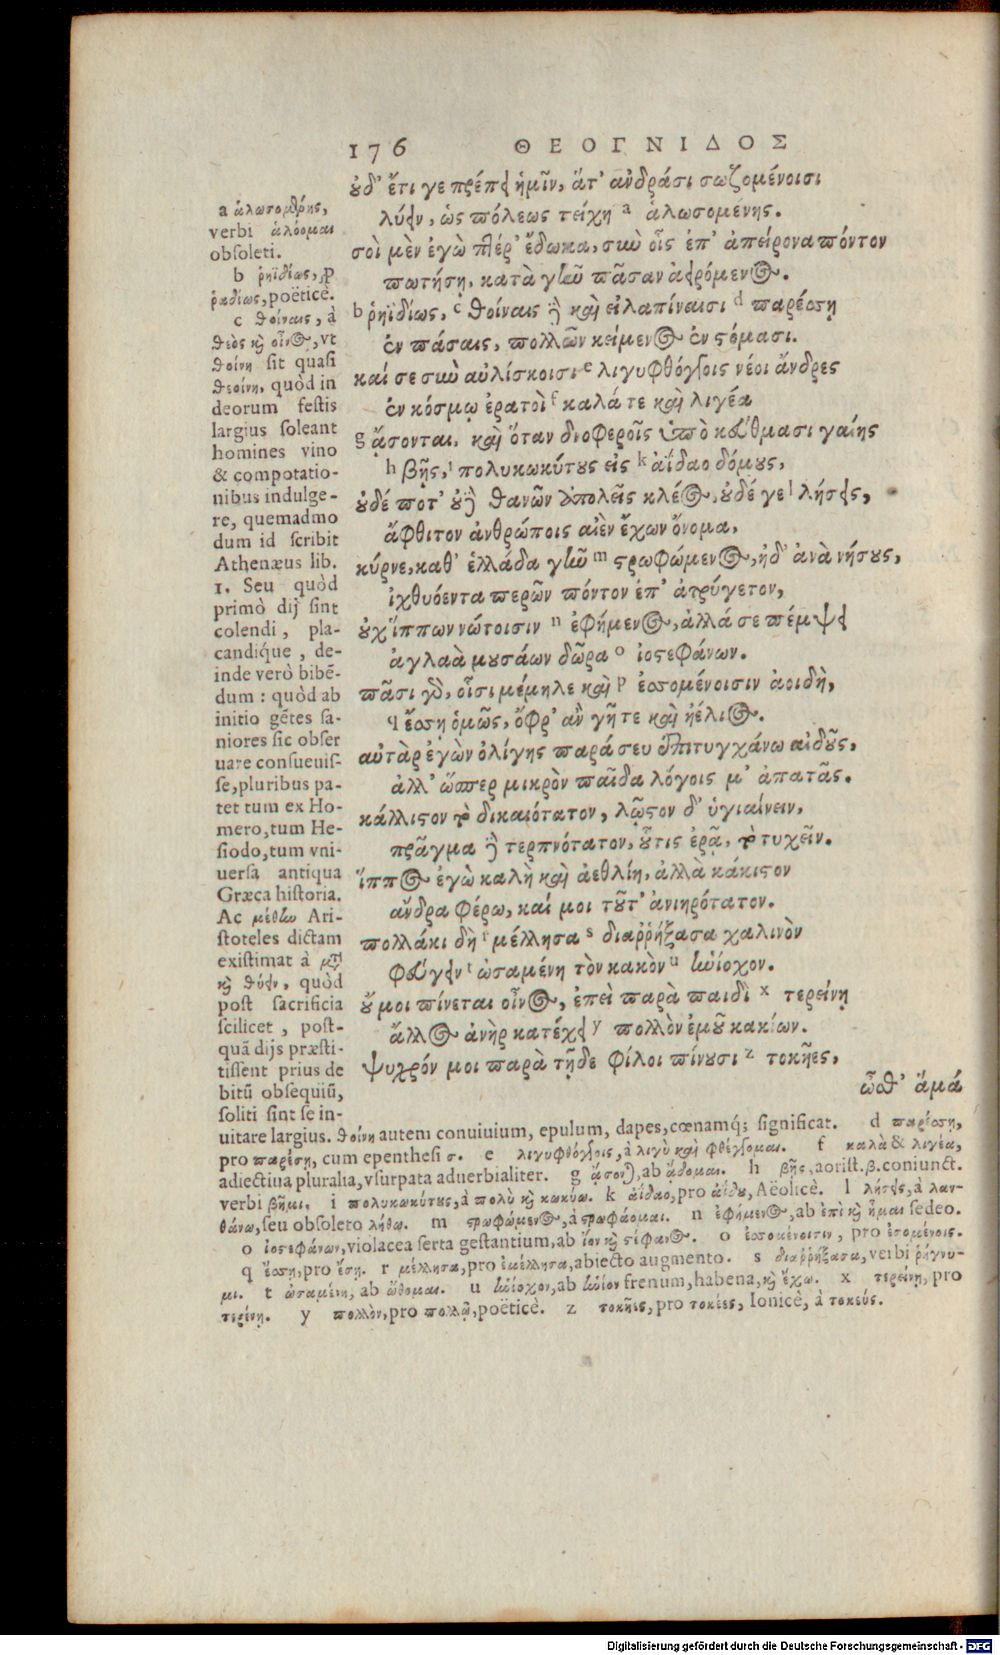 176 ΘΕΟΓΝΙΔΟΣ
οὐδ' ἔτι γε πρέπει ἡμῖν, ἅτ' ἀνδράσι σωζομένοισι
λύειν, ὡς πόλεως τείχη a ἁλωσομένης.
σοὶ μὲν ἐγὼ πτέρ' ἔδωκα, σὺν οἷς ἐπ' ἀπείρονα πόντον
πωτήσῃ, κατὰ γῆν πᾶσαν ἀειρόμενος.
b ῥηϊδίως, c θοίναις δὲ καὶ εἰλαπίναισι d παρέσσῃ
ἐν πάσαις, πολλῶν κείμενος ἐν στόμασι.
καί σε σὺν αὐλίσκοισι e λιγυφθόγγοις νέοι ἄνδρες
ἐν κόσμῳ ἐρατοὶ f καλά τε καὶ λιγέα
g ᾄσονται. καὶ ὅταν δνοφεροῖς ὑπὸ κεύθμασι γαίης
h βῇς, i πολυκωκύτους εἰς k ἀΐδαο δόμους,
οὐδέ ποτ' οὐδὲ θανὼν ἀπολεῖς κλέος, οὐδέ γε l λήσεις,
ἄφθιτον ἀνθρώποις αἰὲν ἔχων ὄνομα,
κύρνε, καθ' ἑλλάδα γῆν m στρωφώμενος, ἠδ' ἀνὰ νήσους,
ἰχθυόεντα περῶν πόντον ἐπ' ἀτρύγετον,
οὐχ ἵππων νώτοισιν n ἐφήμενος, ἀλλά σε πέμψει
ἀγλαὰ μουσάων δῶρα o ἰοστεφάνων.
πᾶσι γὰρ, οἷσι μέμηλε καὶ p ἐσσομένοισιν ἀοιδὴ,
q ἔσσῃ ὁμῶς, ὄφρ' ἂν γῆ τε καὶ ἠέλιος.
αὐτὰρ ἐγὼν ὀλίγης παρά σευ ἐπιτυγχάνω αἰδοῦς,
ἀλλ' ὥσπερ μικρὸν παῖδα λόγοις μ' ἀπατᾷς.
κάλλιστον τὸ δικαιότατον, λῷστον δ' ὑγιαίνειν,
πρᾶγμα δὲ τερπνότατον, οὗτις ἐρᾷ, τὸ τυχεῖν.
ἵππος ἐγὼ καλὴ καὶ ἀεθλίη, ἀλλὰ κάκιστον
ἄνδρα φέρω, καί μοι τοῦτ' ἀνιηρότατον.
πολλάκι δὴ r μέλλησα s διαῤῥήξασα χαλινὸν
φεύγειν t ὠσαμένη τὸν κακὸν u ἡνίοχον.
οὔ μοι πίνεται οἶνος, ἐπεὶ παρὰ παιδὶ x τερείνῃ
ἄλλος ἀνὴρ κατέχει y πολλὸν ἐμοῦ κακίων.
ψυχρόν μοι παρὰ τῇδε φίλοι πίνουσι z τοκῆες,
ὥσθ' ἅμα
a ἁλωσομένης,
verbi ἁλόομαι
obsoleti.
b ῥηϊδίως, pro
ῥαδίως, poëticè.
c θοίναις, à
θεὸς καὶ οἶνος, vt
θοίνη sit quasi
θεοίνη, quòd in
deorum festis
largius soleant
homines vino
& compotatio-
nibus indulge-
re, quemadmo
dum id scribit
Athenæus lib.
1. Seu quòd
primò dij sint
colendi, pla-
candique, de-
inde verò bibē-
dum: quòd ab
initio gētes sa-
niores sic obser
uare consueuis-
se, pluribus pa-
tet tum ex Ho-
mero, tum He-
siodo, tum vni-
uersa antiqua
Græca historia.
Ac μέθην Ari-
stoteles dictam
existimat à μετὰ
καὶ θύειν, quòd
post sacrificia
scilicet, post-
quā dijs præsti-
tissent prius de
bitū obsequiū,
soliti sint se in-
uitare largius. θοίνη autem conuiuium, epulum, dapes, cœnamq́; significat. d παρέσσῃ,
pro παρέσῃ, cum epenthesi σ. e λιγυφθόγγοις, à λιγὺ καὶ φθέγγομαι. f καλὰ & λιγέα,
adiectiua pluralia, vsurpata aduerbialiter. g ᾄσονται, ab ᾄδομαι. h βῇς, aorist. β. coniunct.
verbi βῆμι. i πολυκωκύτους, à πολὺ καὶ κωκύω. k ἀΐδαο, pro ἀΐδου, Aëolicè. l λήσεις, à λαν-
θάνω, seu obsoleto λήθω. m στρωφώμενος, à στρωφάομαι. n ἐφήμενος, ab ἐπὶ καὶ ἧμαι sedeo.
o ἰοστεφάνων, violacea serta gestantium, ab ἴον καὶ στέφανος. o ἐσσομένοισιν, pro ἐσομένοις.
q ἔσσῃ, pro ἔσῃ. r μέλλησα, pro ἐμέλλησα, abiecto augmento. s διαῤῥήξασα, verbi ῥήγνυ-
μι. t ὠσαμένη, ab ὤθομαι. u ἡνίοχον, ab ἡνίον frenum, habena, καὶ ἔχω. x τερείνῃ, pro
τερένῃ. y πολλὸν, pro πολλῷ, poëticè. z τοκῆες, pro τοκέες, Ionicè, à τοκεύς.
Digitalisierung gefördert durch die Deutsche Forschungsgemeinschaft - DFG